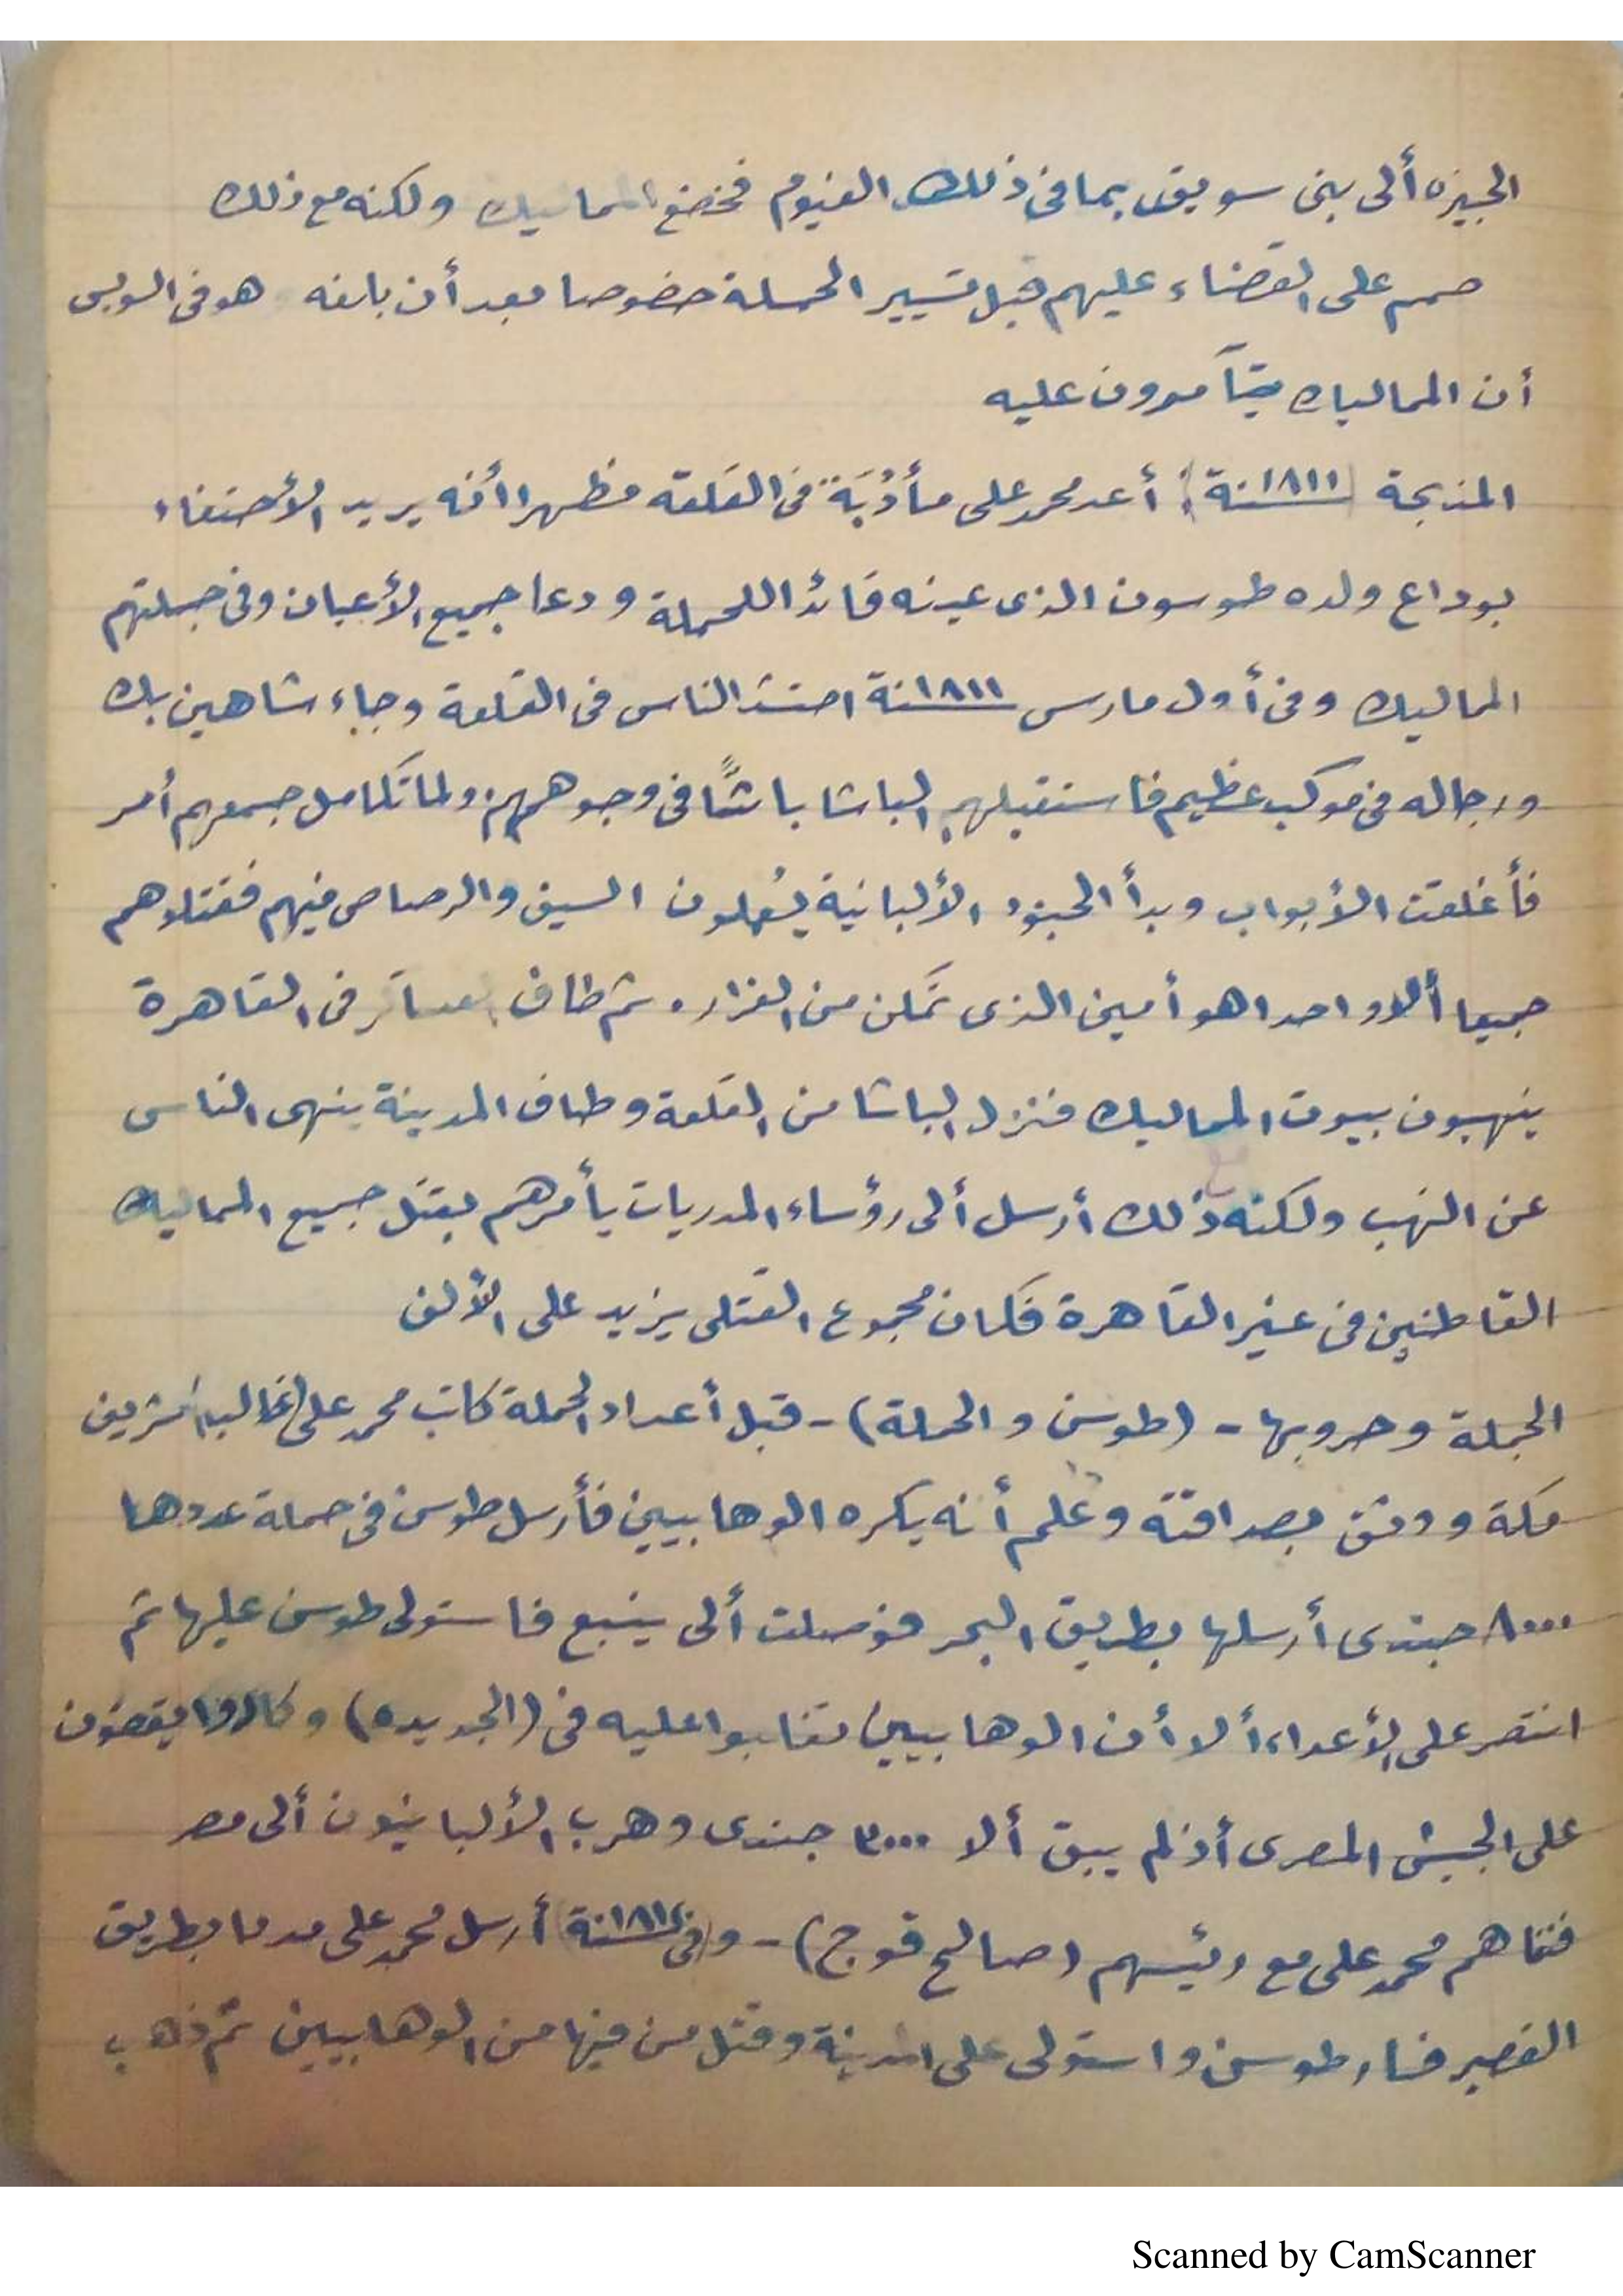 الجيزه ألى بنى سويف بما فى ذلك الفيوم فخضع المماليك ولكنه مع ذلك
صمم على القضاء عليهم قبل تسيير الحملة خصوصا بعد أن بلغه هو فى السويس
أن المماليك يتآمرون عليه
المذبحة (سنة ١٨١١): أعد محمد على مأدُبَة فى القلعة مظهرا أنه يريد الأحتفاء
بوداع ولده طوسون الذى عينه قائدا للحملة ودعا جميع الأعيان وفى جملتهم
المماليك وفى أول مارس سنة ١٨١١ احتشد الناس فى القلعة وجاء شاهين بك
ورجاله فى موكب عظيم فاستقبلهم الباشا باشًّا فى وجوههم ولما تكامل جمعهم أمر
فأغلقت الأبواب وبدأ الجنود الألبانية يُعملون السيف والرصاص فيهم فقتلوهم
جميعا ألا واحدا هو أمين الذى تمكن من الفرار. ثم طاف العساكر فى القاهرة
ينهبون بيوت المماليك فنزل الباشا من القلعة وطاف المدينة ينهى الناس
عن النهب ولكنه مع ذلك أرسل ألى رؤساء المدريات يأمرهم بقتل جميع المماليك
القاطنين فى غير القاهرة فكان مجموع القتلى يزيد على الألف
الحملة وحروبها - (طوسن والحملة) - قبل أعداد الحملة كاتب محمد على غالبا شريف
مكة ووثق بصداقتة وعلم أنه يكره الوهابيين فأرسل طوسن فى حملة عددها
٨٠٠٠ جندى أرسلها بطريق البحر فوصلت ألى ينبع فاستولى طوسن عليها ثم
انتصر على الأعداء ألا أن الوهابيين تغلبوا عليه فى (الجديده) وكادوا يقضون
على الجيش المصرى أذ لم يبق ألا ٣٠٠٠ جندى وهرب الألبانيون ألى مصر
فنفاهم محمد على مع رئيسهم (صالح قوج) - و(فى سنة ١٨١٢) أرسل محمد على مددا بطريق
القصير فسار طوسن واستولى على المدينة وقتل من فيها من الوهابيين ثم ذهب
Scanned by CamScanner